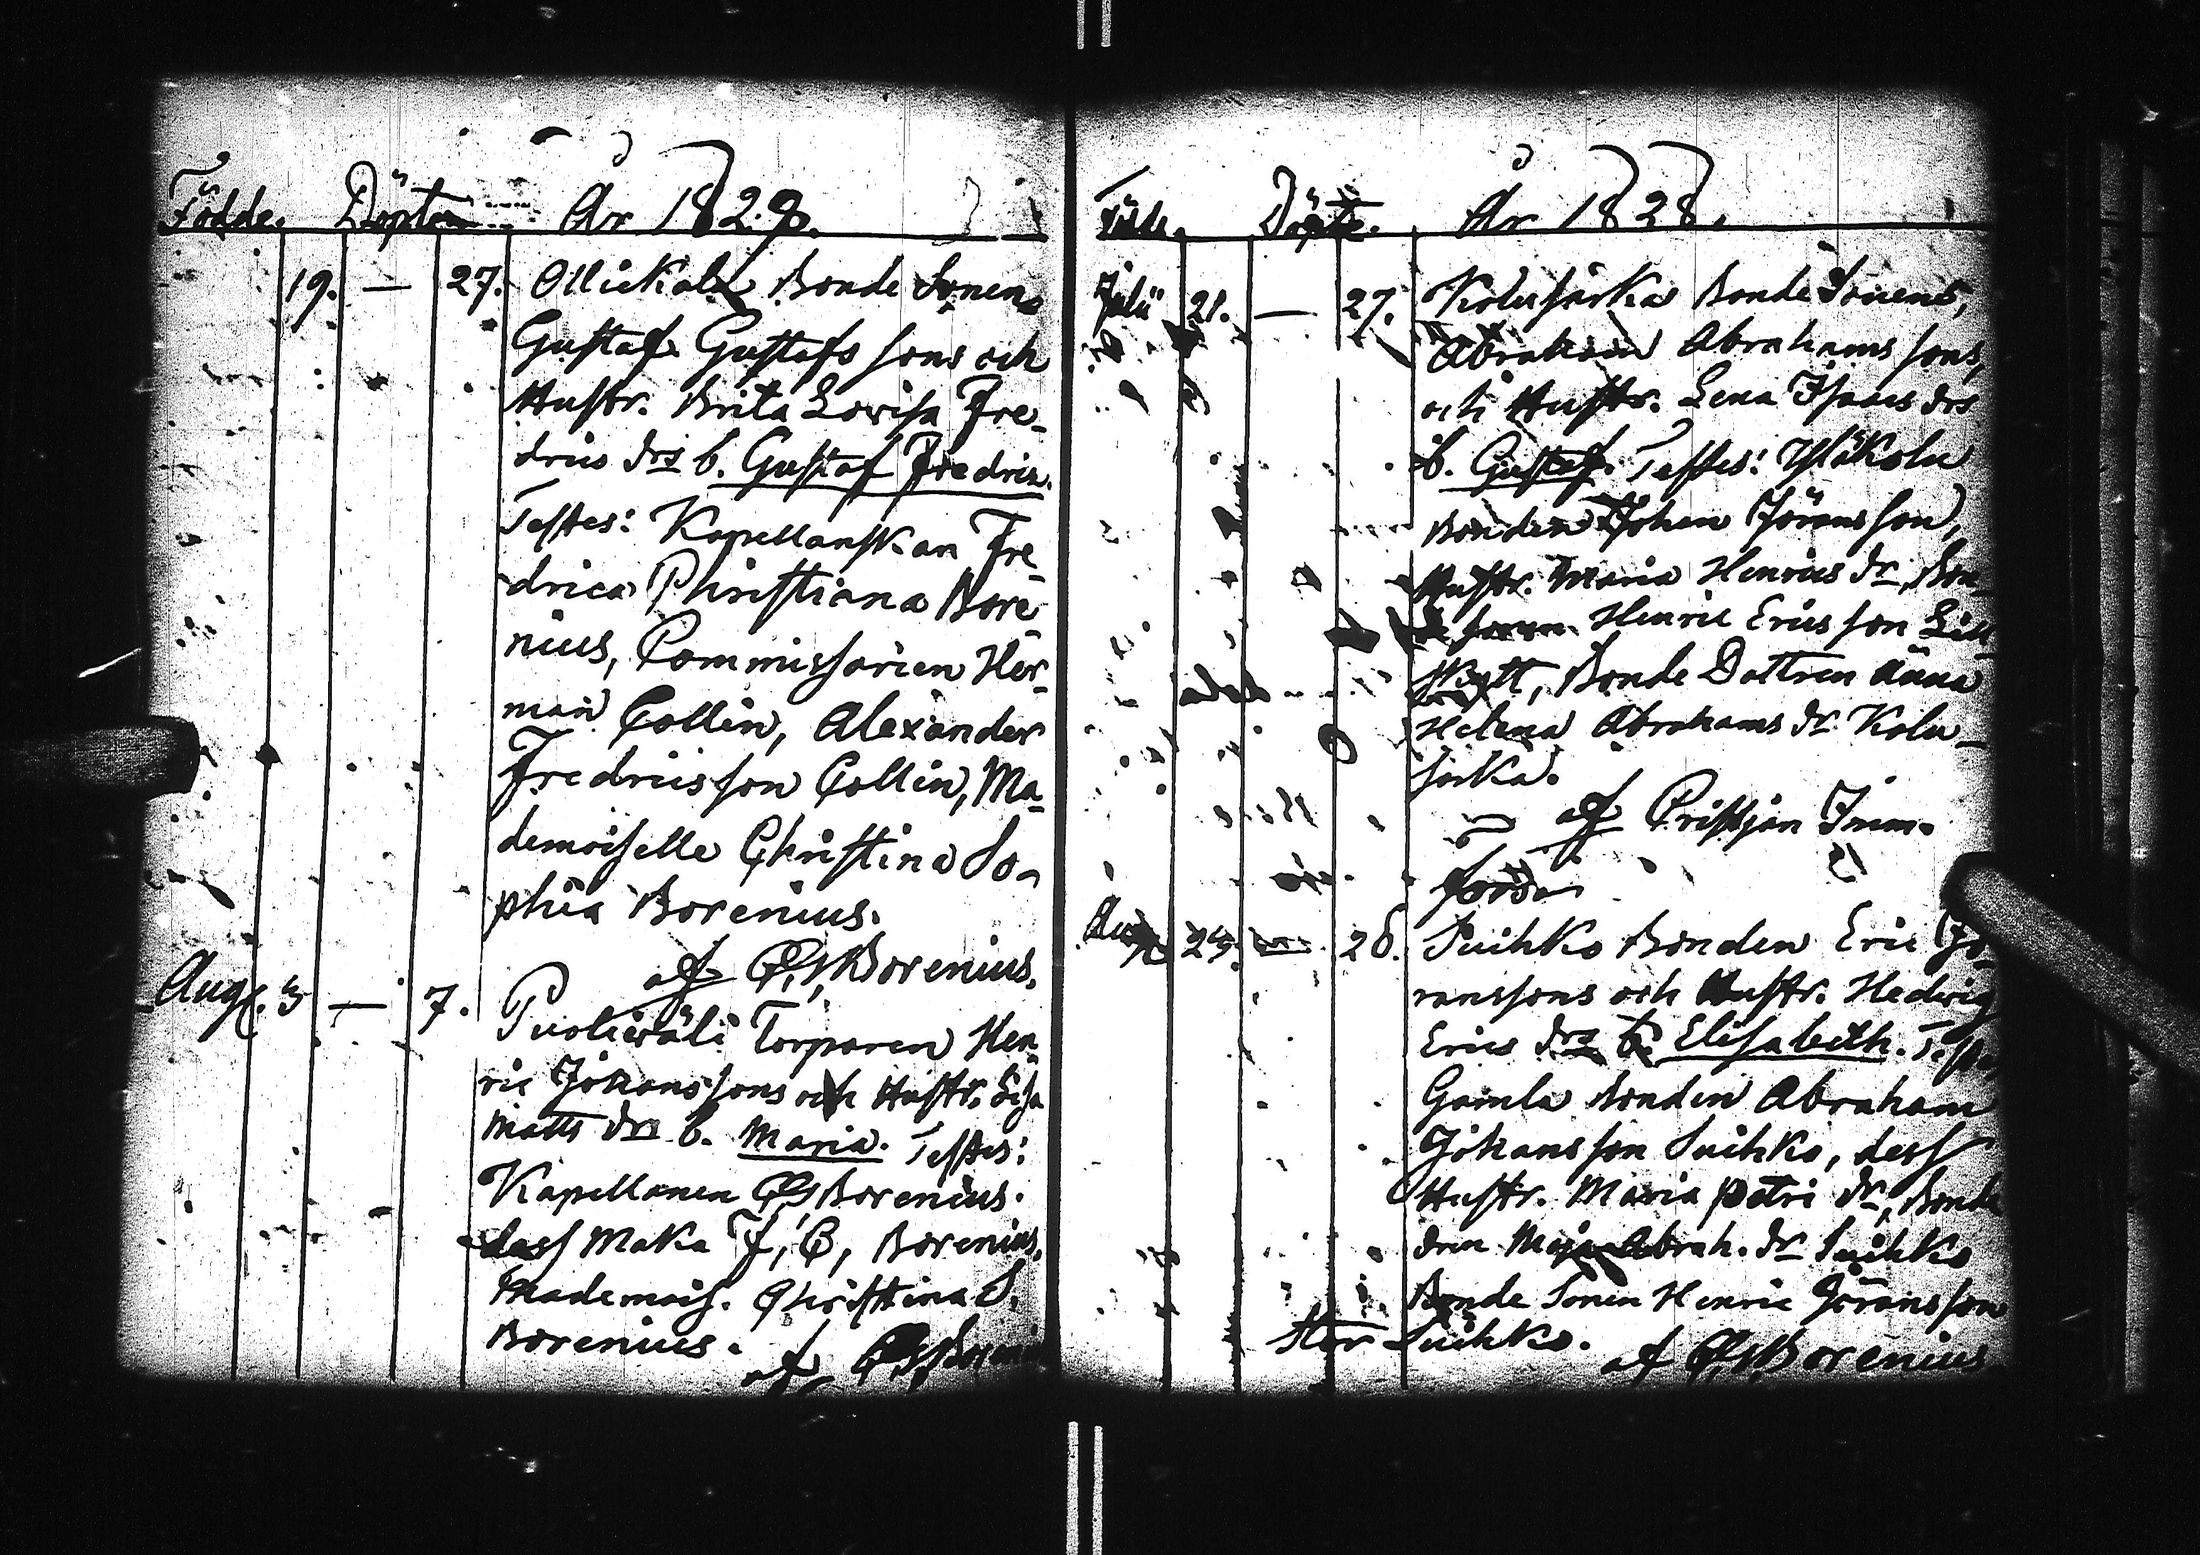 Födde. Döpte År 1828.
19. — 27. Ollikala Bonde Sonens
Gustaf Gustafs sons och
Hustr. Brita Lovisa Fre-
drics drs b. Gustaf Fredric.
Testes: Kapellanskan Fre-
drica Christiana Bore
nius, Commissarien Her-
man Collin, Alexander
Fredricsson Collin, Ma-
demoiselle Christina So-
phia Borenius.
af Borenius.
Aug. 3 — 7. Puoliväli Torparen Hen
ric Johanssons och Hustr. Lisa
Matts drs b. Maria. Testes:
Kapellanen Borenius.
dess Maka F, C, Borenius,
Mademois. Christina S.
Borenius.
af
Födde. Döpte. År 1828.
Julii 21. — 27. Kolusarka Bonde Sonens,
Abraham Abrahams sons,
och Hustr. Lena Isaacs drs
b. Gustaf. Testes: Yläkolu
Bonden Johan Göransson,
Hustr. Maria Henrics dr, Bon-
de sonen Henric Ericsson Lill
Bonde Dottren Anna
Helena Abrahams dr Kolu-
sarka.
af Cristjan Imm.
Aug. 25. — 28. Suihko Bonden Eric Jö-
ranssons och Hustr. Hedvig
Erics drs b. Elisabeth. Testes
Gamla Bonden Abraham
Johansson Suihko, dess
Hustr. Maria Petri dr, Bonde
dren Maja Abrah. dr Suihko
Bonde Sonen Henric Göransson
Stor Suihko.
af Borenius